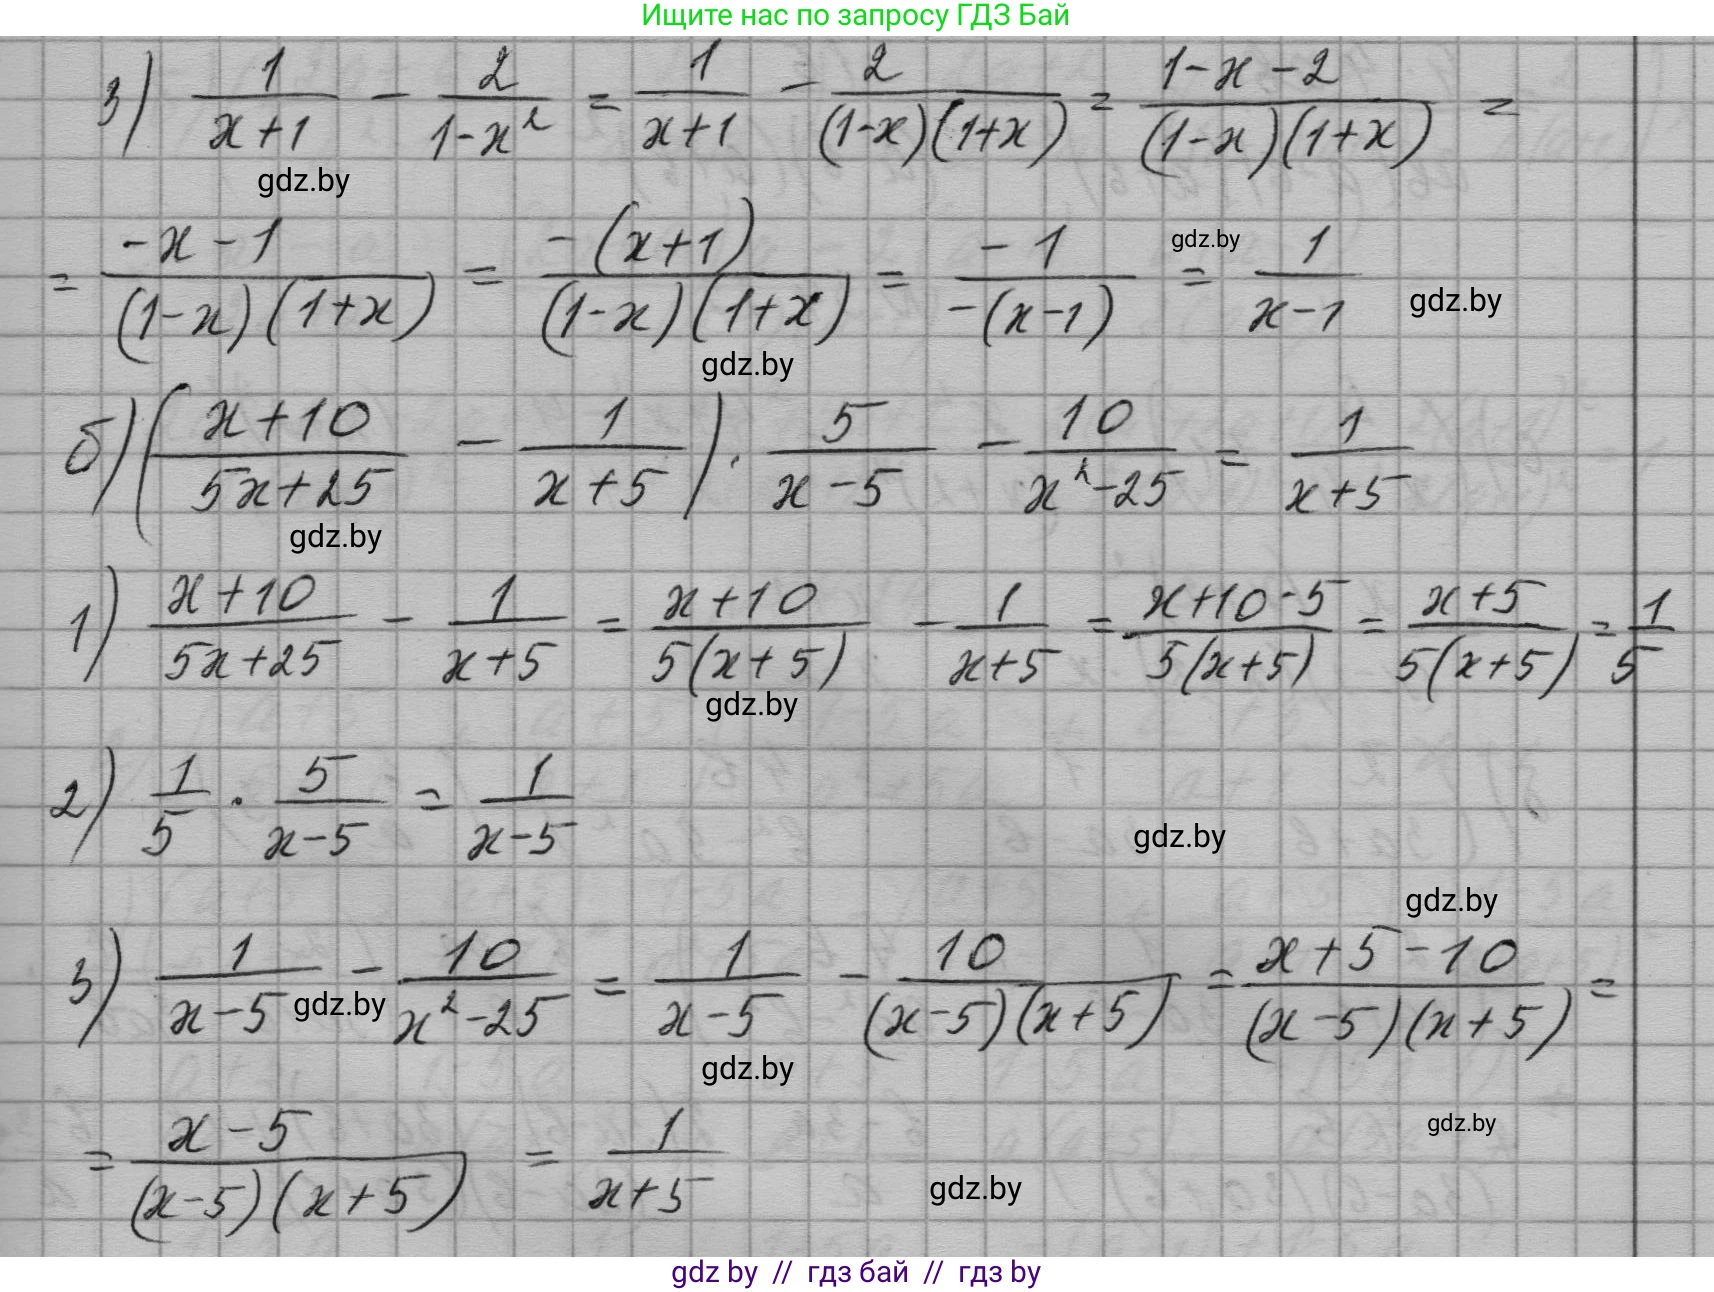 Ищите нас по запросу ГДЗ Бай
3) 1/(x+1) - 2/(1-x²) = 1/(x+1) - 2/((1-x)(1+x)) = (1-x-2)/((1-x)(1+x)) =
gdz.by
= (-x-1)/((1-x)(1+x)) = (-(x+1))/((1-x)(1+x)) = (-1)/(-(x-1)) = 1/(x-1)
gdz.by
gdz.by
gdz.by
б) ((x+10)/(5x+25) - 1/(x+5)) · 5/(x-5) - 10/(x²-25) = 1/(x+5)
gdz.by
1) (x+10)/(5x+25) - 1/(x+5) = (x+10)/(5(x+5)) - 1/(x+5) = (x+10-5)/(5(x+5)) = (x+5)/(5(x+5)) = 1/5
gdz.by
2) 1/5 · 5/(x-5) = 1/(x-5)
gdz.by
gdz.by
3) 1/(x-5) - 10/(x²-25) = 1/(x-5) - 10/((x-5)(x+5)) = (x+5-10)/((x-5)(x+5)) =
gdz.by
gdz.by
gdz.by
= (x-5)/((x-5)(x+5)) = 1/(x+5)
gdz.by
gdz by // гдз бай // гдз by